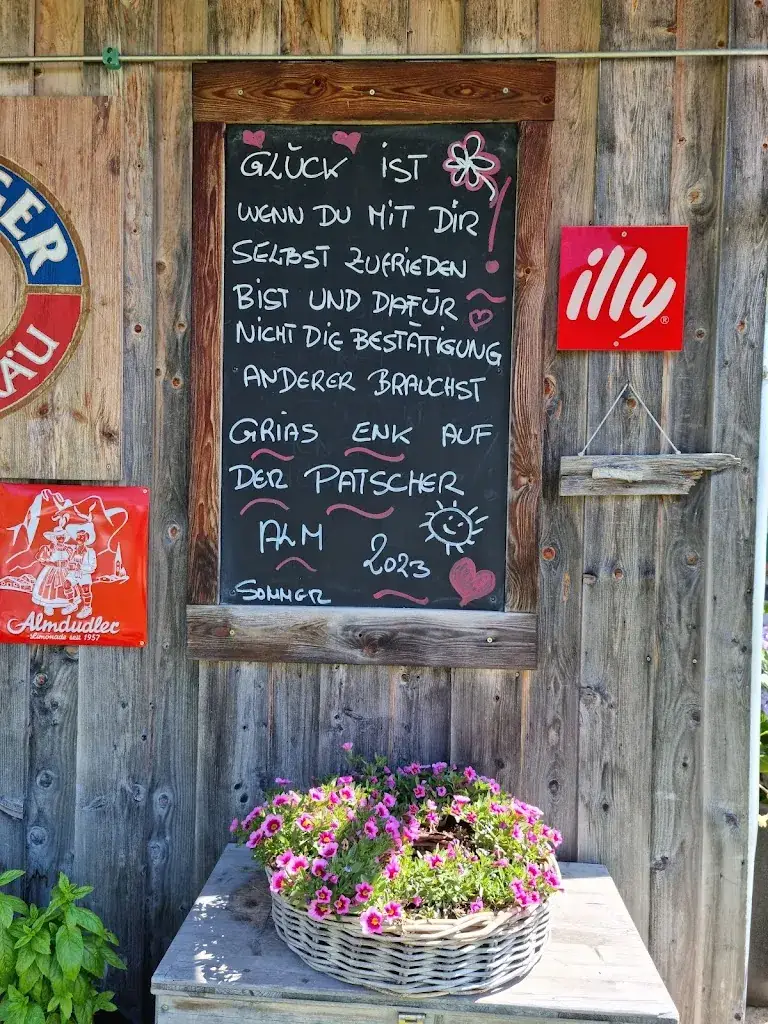 GLÜCK IST
WENN DU MIT DIR
SELBST ZUFRIEDEN
BIST UND DAFÜR
NICHT DIE BESTÄTIGUNG
ANDERER BRAUCHST
GRIAS ENK AUF
DER PATSCHER
ALM 2023
SOMMER
illy®
GER
ÄU
Almdudler
Limonade seit 1957